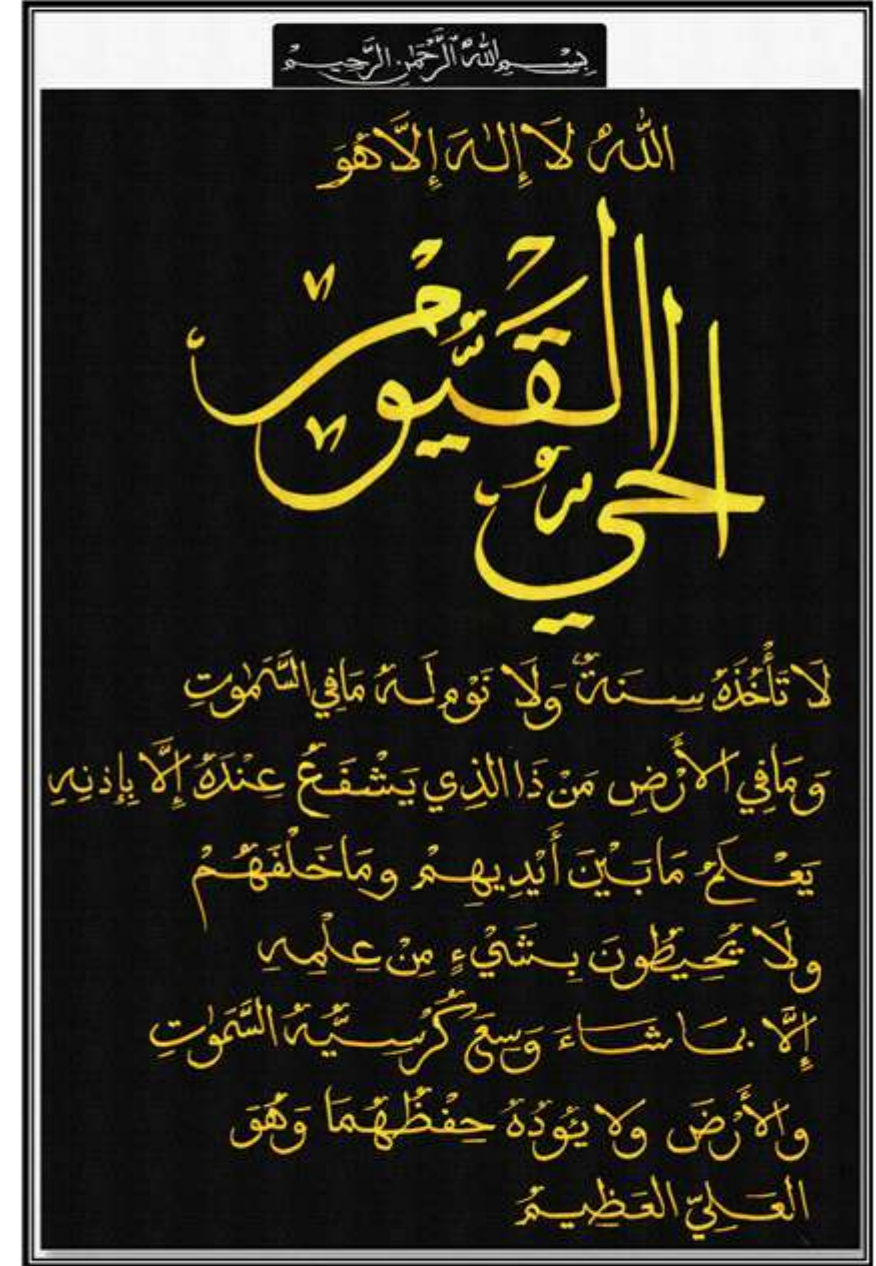 بِسْمِ اللهِ الرَّحْمٰنِ الرَّحِيْمِ
اللهُ لَا إِلٰهَ إِلَّا هُوَ
الحَيُّ القَيُّومُ
لَا تَأْخُذُهُ سِنَةٌ وَلَا نَوْم لَهُ مَا فِي السَّمٰوٰتِ
وَمَا فِي الأَرْضِ مَنْ ذَا الذِي يَشْفَعُ عِنْدَهُ إِلَّا بِإِذنِهِ
يَعْلَمُ مَا بَيْنَ أَيْدِيهِمْ وَمَا خَلْفَهُمْ
وَلَا يُحِيْطُونَ بِشَيْءٍ مِنْ عِلْمِهِ
إِلَّا بمَا شَاءَ وَسِعَ كُرْسِيُّهُ السَّمٰوٰتِ
وَالأَرْضَ وَلَا يَئُودُهُ حِفْظُهُمَا وَهُوَ
العَلِيّ العَظِيمُ